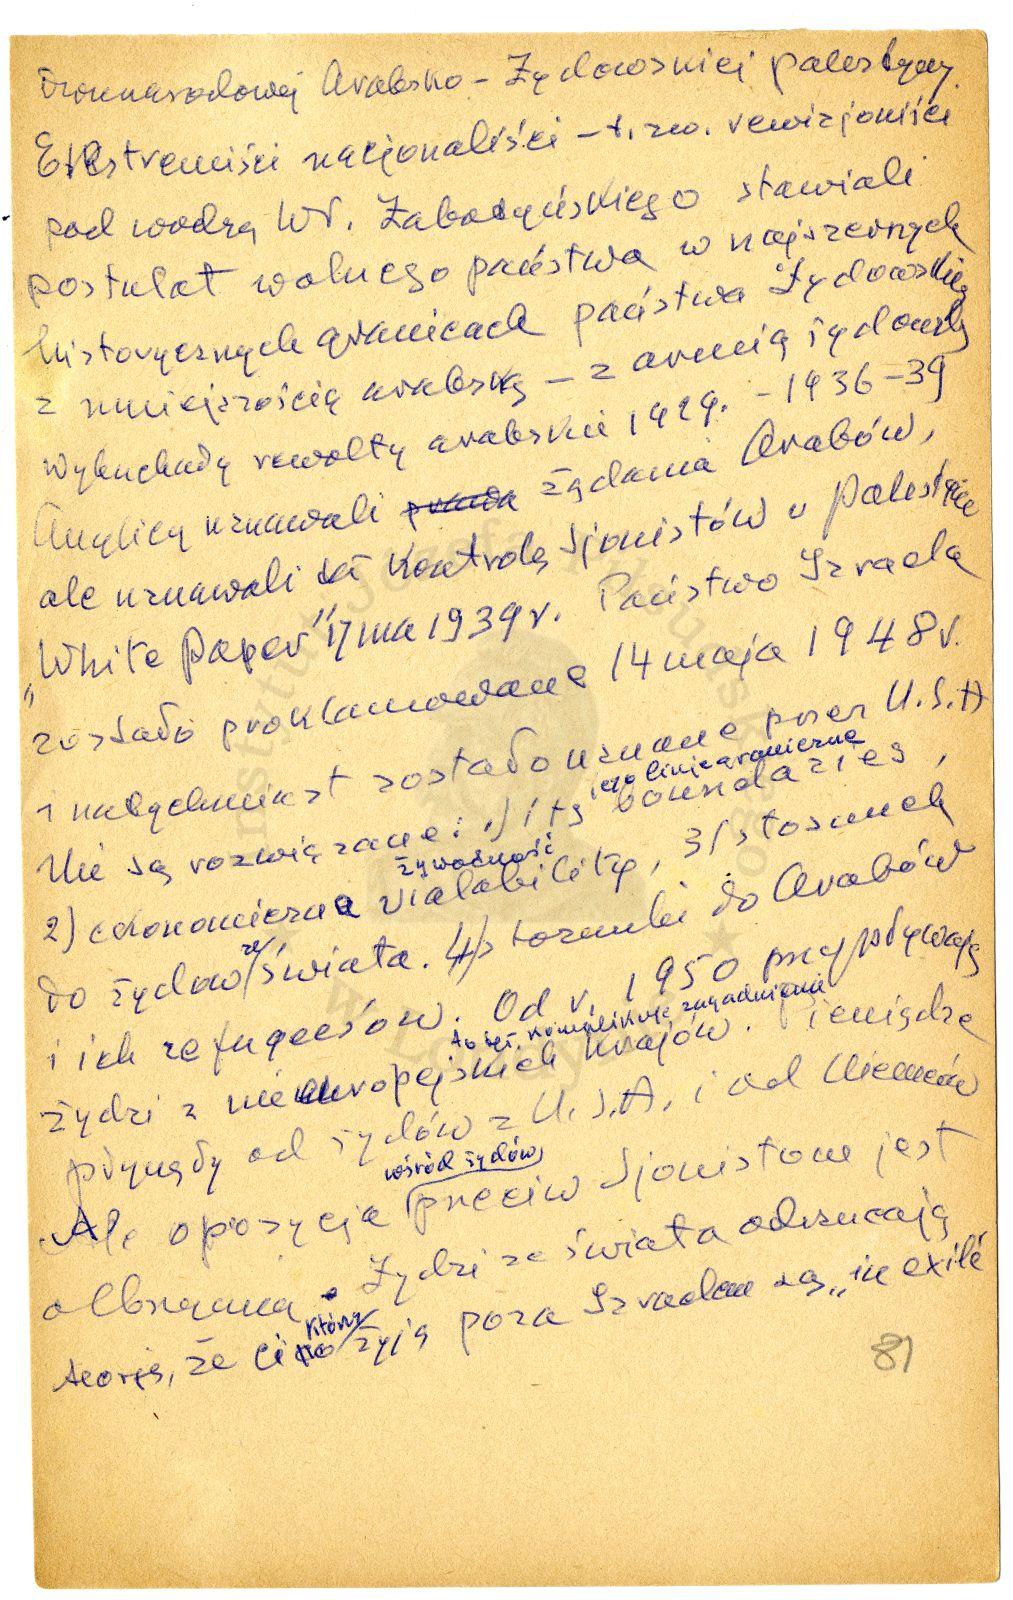 Dwunarodowej Arabsko-Żydowskiej Palestyny.
Ekstremiści nacjonaliści – t.zw. rewizjoniści
pod wodzą Wł. Żabotyńskiego stawiali
postulat wolnego państwa w najszerszych
historycznych granicach państwa Żydowskieg
z mniejszością arabską – z armią żydowską
Wybuchały rewolty arabskie 1929. – 1936–39
Anglicy uznawali żądania Arabów,
ale uznawali też Kontrolę Sjonistów w Palestynie
„White Paper" 17 ma 1939 r. Państwo Izraela
zostało proklamowane 14 maja 1948 r.
i natychmiast zostało uznane przez U.S.A
jego linie graniczne
Nie są rozwiązane: 1/ its boundaries,
żywotność
2) ekonomiczna vialability, 3/ stosunek
do żydów ze świata. 4/ stosunki do Arabów
i ich refugeesów. Od r. 1950 przypływają
to też komplikuje zagadnienie
żydzi z nieeuropejskich krajów. Pieniądze
płynęły od żydów z U.S.A. i od Niemców
wśród żydów
Ale opozycja przeciw Sjonistom jest
olbrzymia. Żydzi ze świata odrzucają
którzy
teorję, że ci żyją poza Izraelem są „in exile
81
Instytut Józefa Piłsudskiego
w Londynie